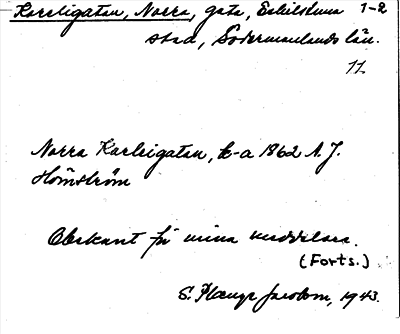 Karlsigatan, Norra, gata, Eskilstuna 1-2
stad, Södermanlands län.
11
Norra Karlsigatan, k-a 1862 A.J.
Holmström
Obekant för mina meddelare.
(Forts.)
S. Plænge Jacobson, 1943.